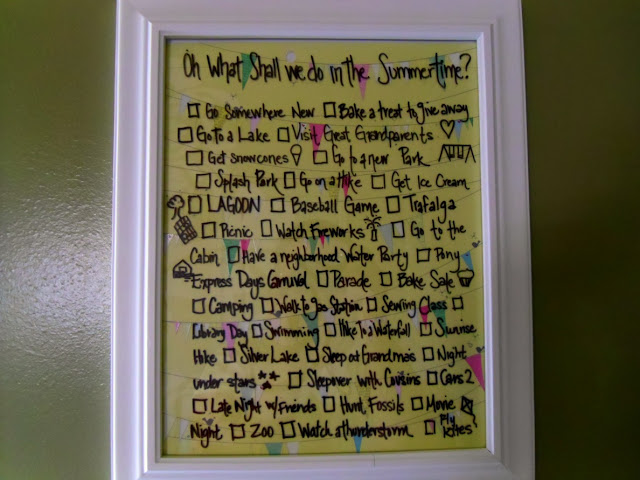 Oh What Shall we do in the Summertime?
☐ Go Somewhere New ☐ Bake a treat to give away
☐ Go to a Lake ☐ Visit Great Grandparents
☐ Get Snowcones ☐ Go to a new Park
☐ Splash Park ☐ Go on a Hike ☐ Get Ice Cream
☐ LAGOON ☐ Baseball Game ☐ Trafalga
☐ Picnic ☐ Watch Fireworks ☐ Go to the
Cabin ☐ Have a neighborhood Water Party ☐ Pony
Express Days Carnival ☐ Parade ☐ Bake Sale
☐ Camping ☐ Walk to gas Station ☐ Sewing Class ☐
Library Day ☐ Swimming ☐ Hike to a Waterfall ☐ Sunrise
Hike ☐ Silver Lake ☐ Sleep at Grandmas ☐ Night
under stars ☐ Sleepover with Cousins ☐ Cars 2
☐ Late Night w/ Friends ☐ Hunt Fossils ☐ Movie
Night ☐ Zoo ☐ Watch a thunderstorm ☐ Fly Kites